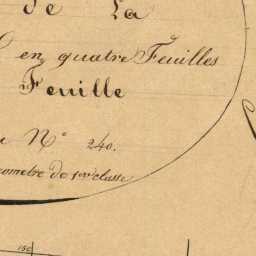 de La
en quatre Feuilles
Feuille
N° 240.
ometre de 1ere classe
150